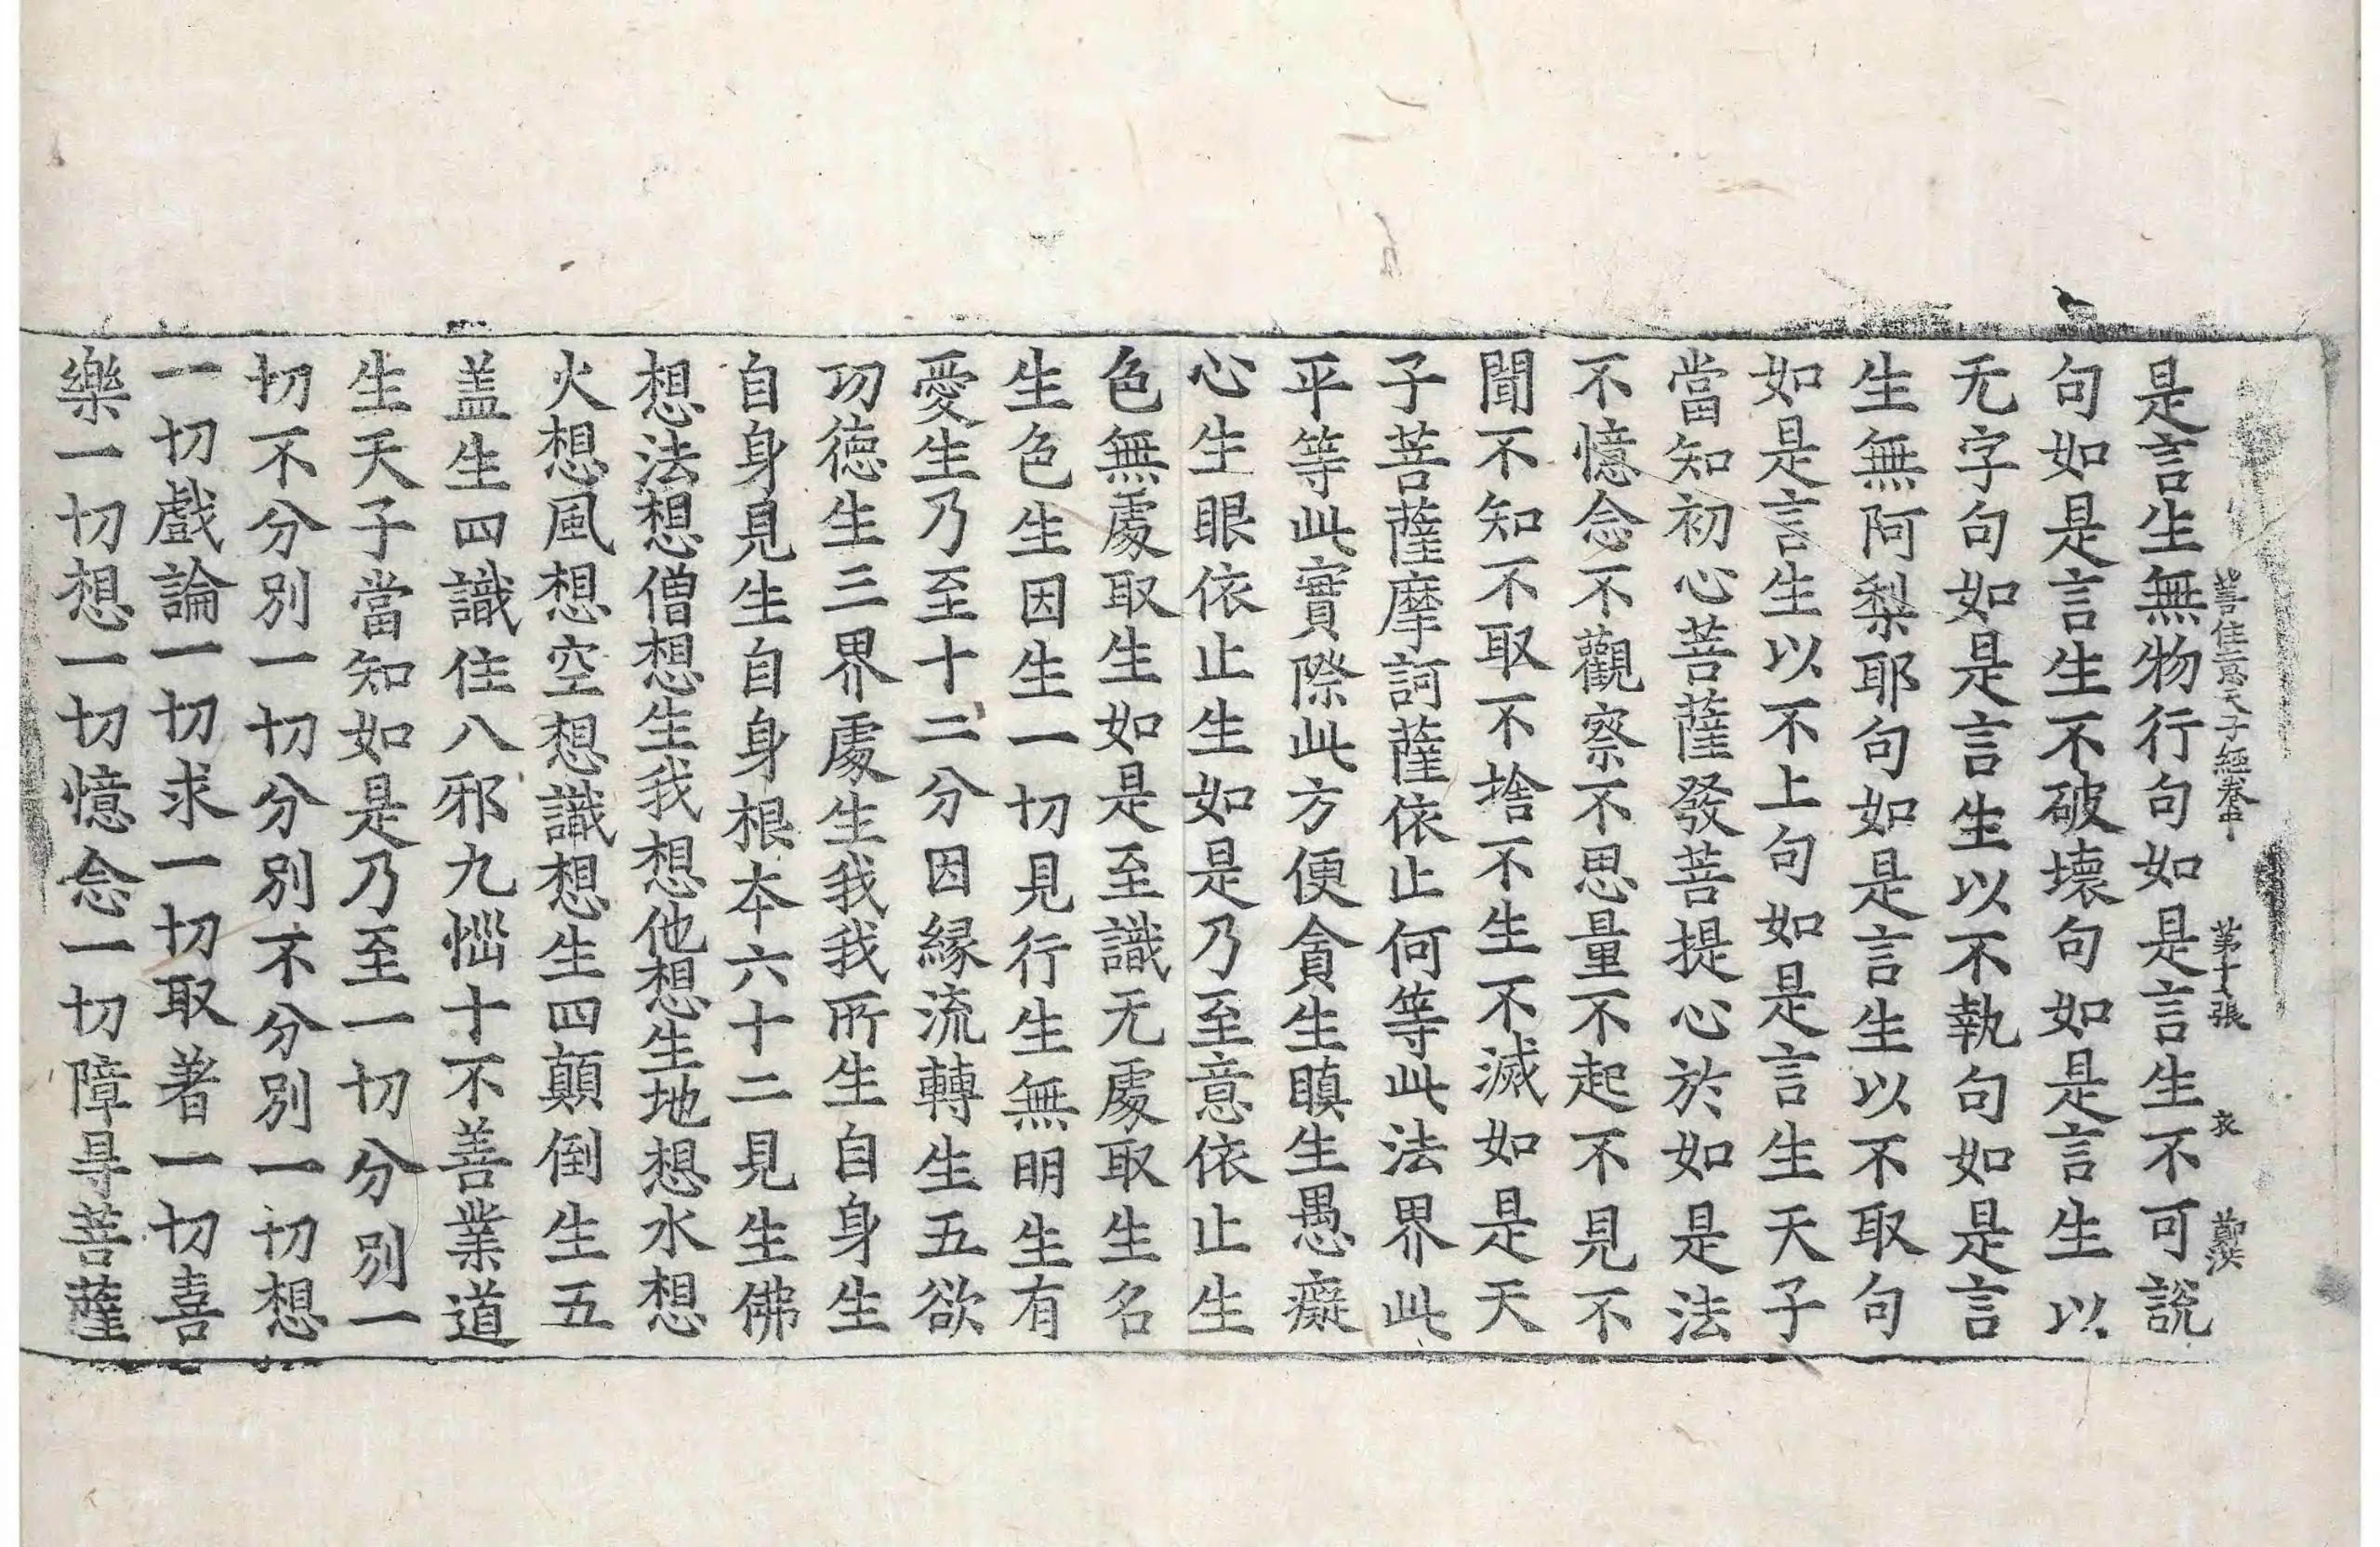 善住意天子經卷中 第十張 衣
是言生無物行句如是言生不可說
句如是言生不破壞句如是言生以
无字句如是言生以不執句如是言
生無阿梨耶句如是言生以不取句
如是言生以不上句如是言生天子
當知初心菩薩發菩提心於如是法
不憶念不觀察不思量不起不見不
聞不知不取不捨不生不滅如是天
子菩薩摩訶薩依止何等此法界此
平等此實際此方便貪生瞋生愚癡
心生眼依止生如是乃至意依止生
色無處取生如是至識无處取生名
生色生因生一切見行生無明生有
愛生乃至十二分因緣流轉生五欲
功德生三界處生我我所生自身生
自身見生自身根本六十二見生佛
想法想僧想生我想他想生地想水想
火想風想空想識想生四顛倒生五
盖生四識住八邪九惱十不善業道
生天子當知如是乃至一切分別一
切不分別一切分別不分別一切想
一切戲論一切求一切取著一切喜
樂一切想一切憶念一切障㝵菩薩